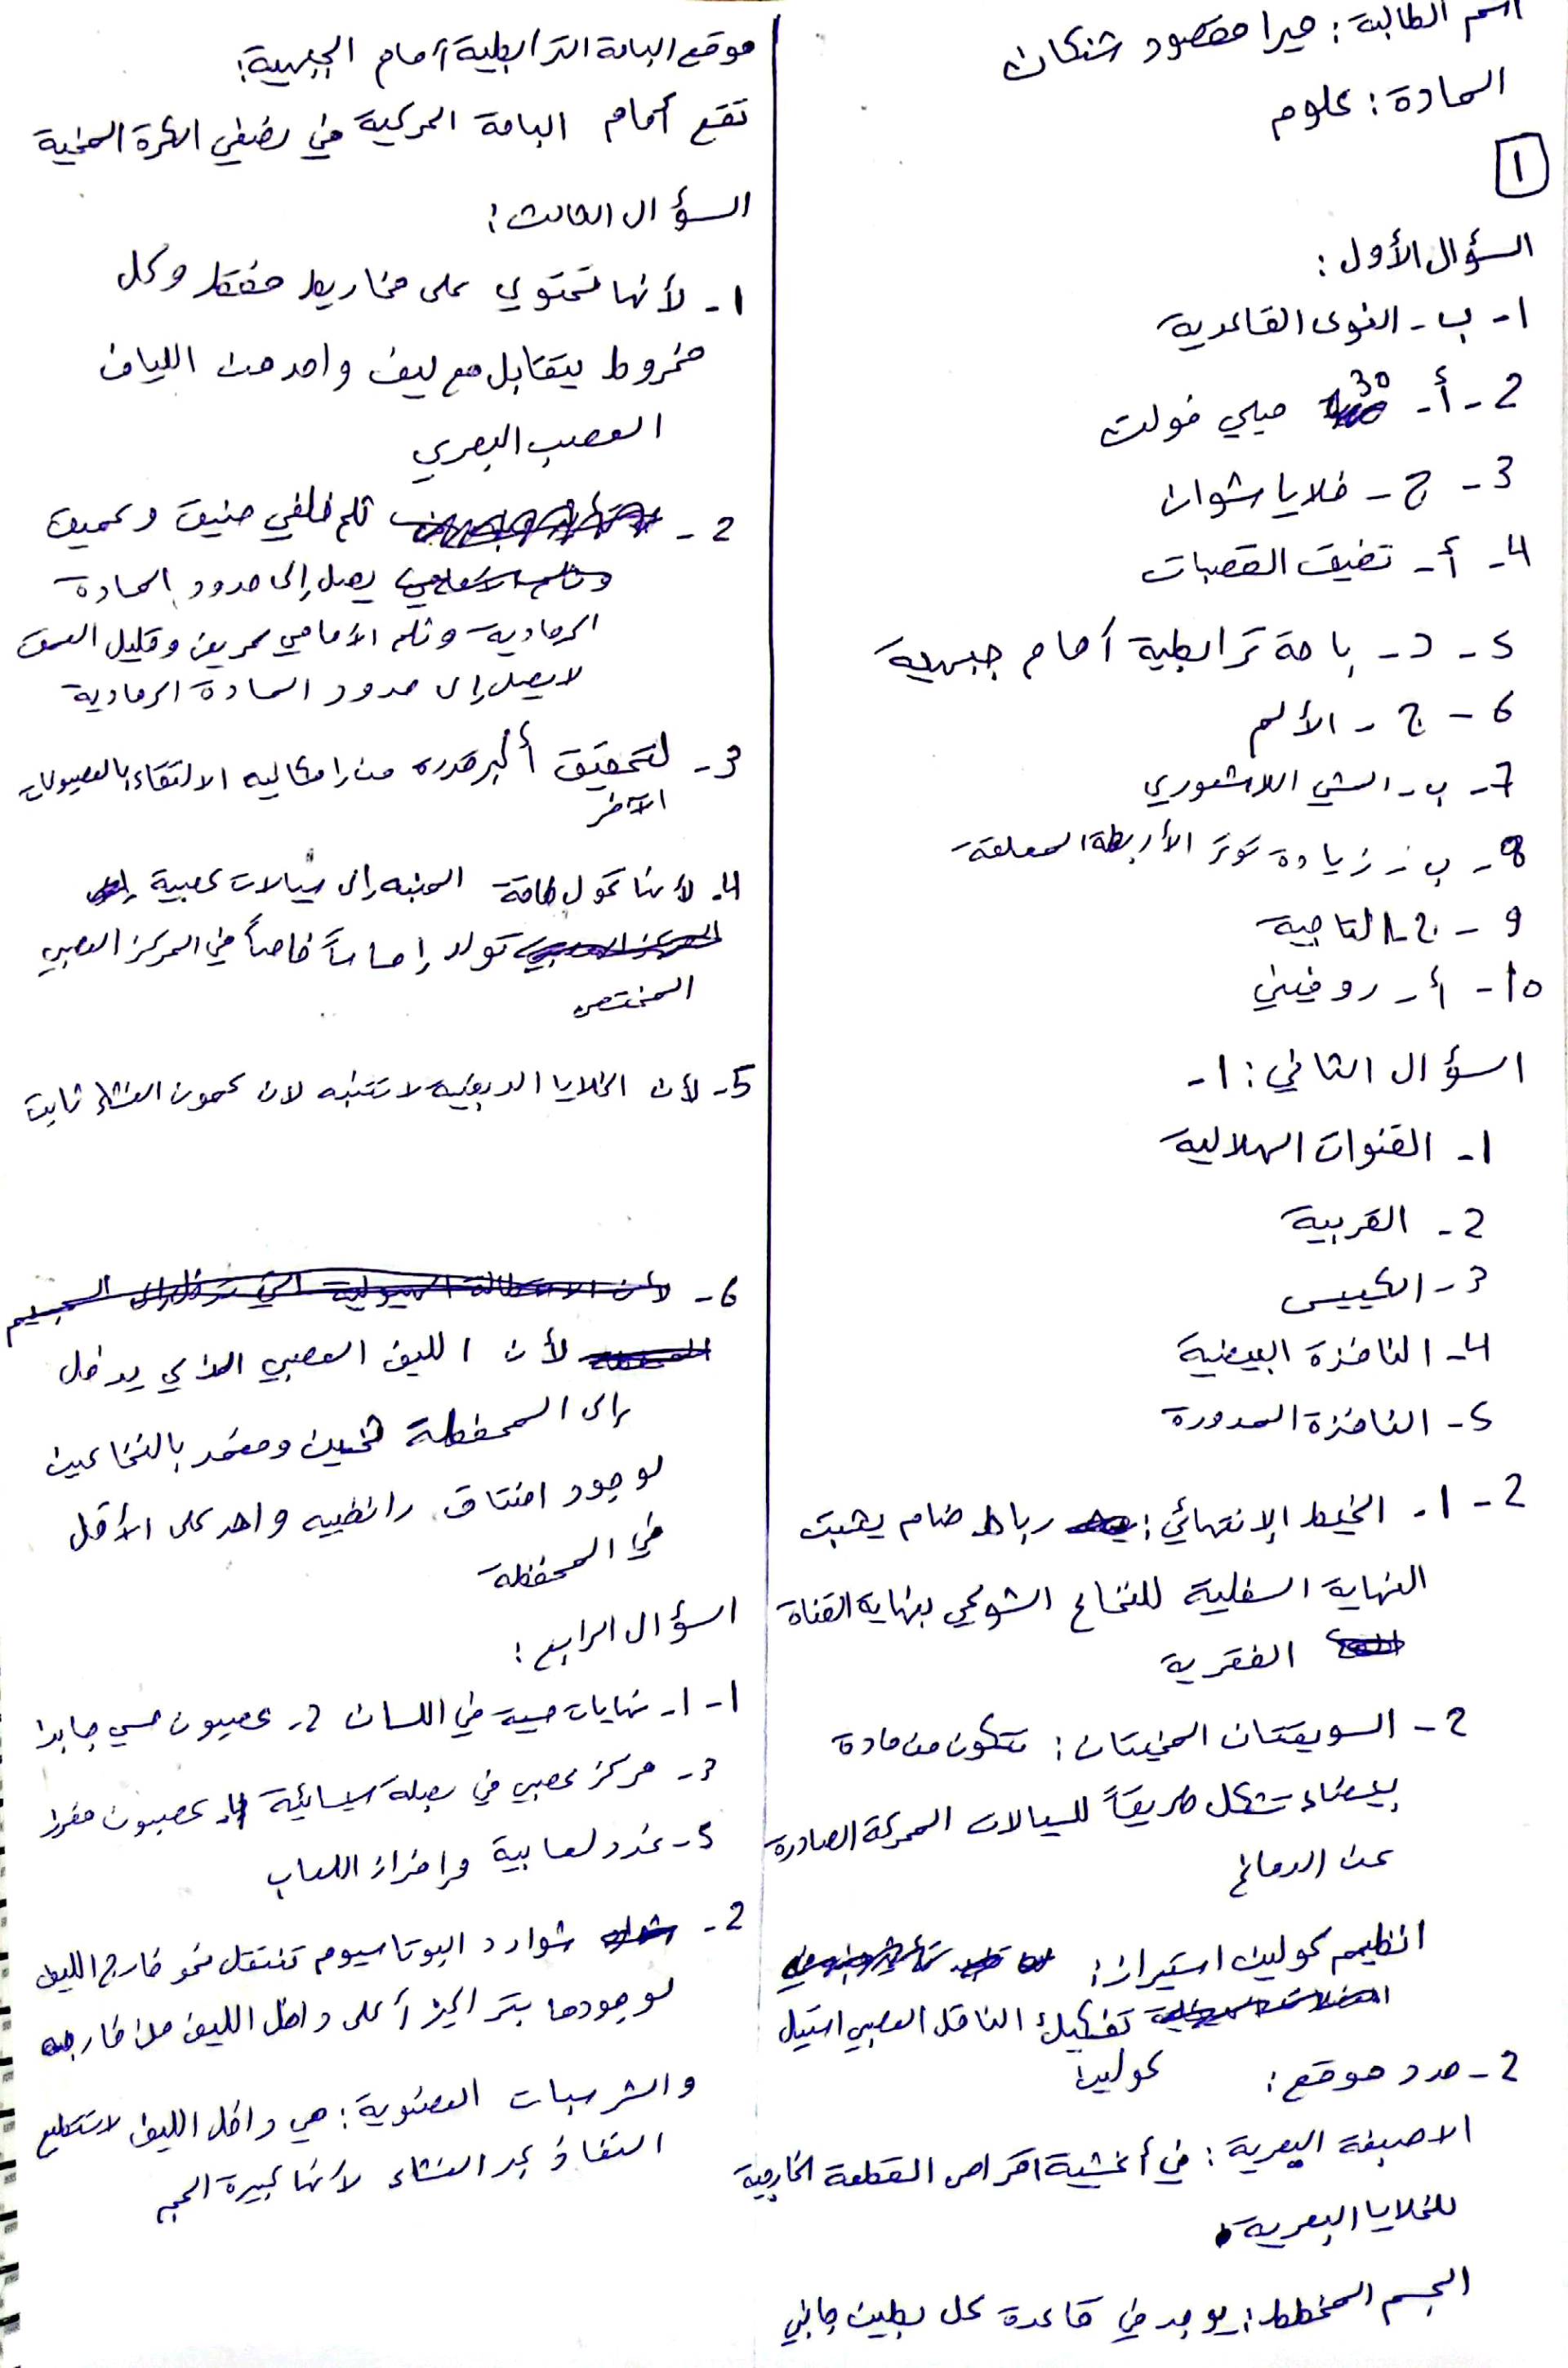 اسم الطالبة: ميرا مقصود شنكان
المادة: علوم
١
السؤال الأول:
1- ب- النوى القاعدية
2- أ- 30 ميلي فولت
3- ج- خلايا شوان
4- أ- تضيق القصبات
5- د- باحة ترابطية أمام جبهية
6- ج- الألم
7- ب- المشي اللاشعوري
8- ب- زيادة توتر الأربطة المعلقة
9- ج- التاجية
10- أ- روفيني
السؤال الثاني: 1-
1- القنوات الهلالية
2- القريبة
3- الكييس
4- النافذة البيضية
5- النافذة المدورة
2- 1- الخيط الإنتهائي: رباط ضام يثبت
النهاية السفلية للنخاع الشوكي بنهاية القناة
الفقرية
2- السويقتان المخيتان: تتكون من مادة
بيضاء تشكل طريقاً للسيالات المحركة الصادرة
عن الدماغ
انظيم كولين استيراز:
تفكيك الناقل العصبي استيل
كولين
2- حدد موقع:
الاصبغة البصرية: في أغشية اقراص القطعة الخارجية
للخلايا البصرية.
الجسم المخطط: يوجد في قاعدة كل بطين جانبي
موقع الباحة الترابطية أمام الجبهية:
تقع أمام الباحة المحركية في نصفي الكرة المخية
السؤال الثالث:
1- لأنها تحتوي على مخاريط فقط وكل
مخروط يتقابل مع ليف واحد من اللياف
العصب البصري
2- ثلم خلفي ضيق وعميق
يصل إلى حدود المادة
الرمادية وثلم الأمامي عريض وقليل العمق
لا يصل إلى حدود المادة الرمادية
3- لتحقيق أكبر قدره من إمكاليه الالتقاء بالعصبونات
الآخر
4- لأنها تحول طاقة المنبه إلى سيالات عصبية
تولد إحساساً خاصاً في المركز العصبي
المختص
5- لأن الخلايا الدبقيه لا تتنبه لان كمون الغشاء ثابت
6-
لأن الليف العصبي الذي يدخل
إلى المحفظة ثخين ومغمد بالنخاعين
لوجود اختناق رانفييه واحد على الأقل
في المحفظة
السؤال الرابع:
1- 1- نهايات حسية في اللسان 2- عصبون حسي جابذ
3- مركز عصبي في بصلة السيسائية 4- عصبون مفرز
5- غدد لعابية وإفراز اللعاب
2- شوارد البوتاسيوم تنتقل نحو خارج الليف
لوجودها بتراكيز أعلى داخل الليف من خارجه
والشرسبات العضوية: هي داخل الليف لا تستطيع
النفاذ عبر الغشاء لأنها كبيرة الحجم